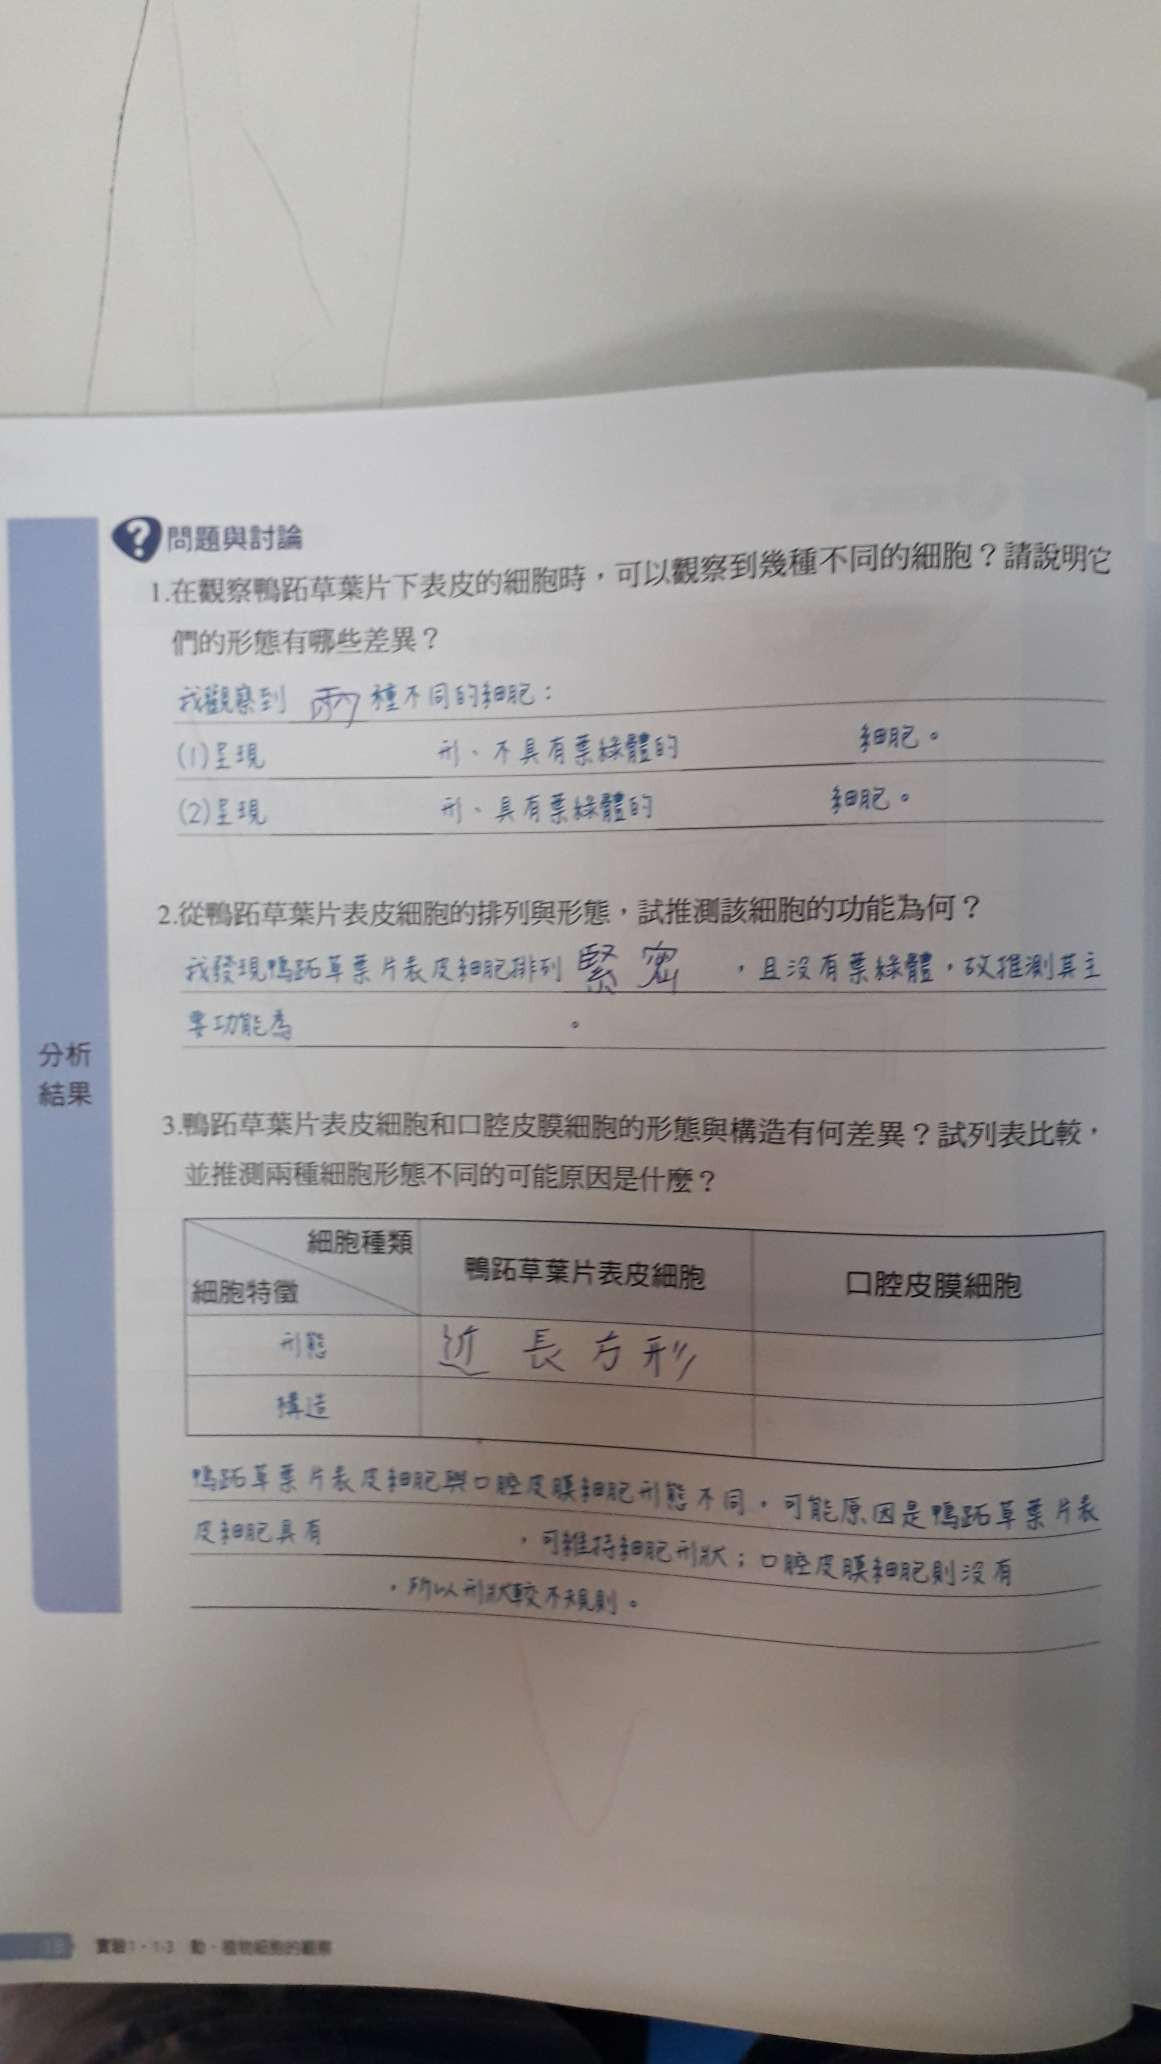 問題與討論
1.在觀察鴨跖草葉片下表皮的細胞時，可以觀察到幾種不同的細胞？請說明它
們的形態有哪些差異？
我觀察到 兩 種不同的細胞：
(1)呈現 形、不具有葉綠體的 細胞。
(2)呈現 形、具有葉綠體的 細胞。
2.從鴨跖草葉片表皮細胞的排列與形態，試推測該細胞的功能為何？
我發現鴨跖草葉片表皮細胞排列 緊密 ，且沒有葉綠體，故推測其主
要功能為 。
分析
結果
3.鴨跖草葉片表皮細胞和口腔皮膜細胞的形態與構造有何差異？試列表比較，
並推測兩種細胞形態不同的可能原因是什麼？
細胞種類
細胞特徵
鴨跖草葉片表皮細胞
口腔皮膜細胞
形態
近長方形
構造
鴨跖草葉片表皮細胞與口腔皮膜細胞形態不同，可能原因是鴨跖草葉片表
皮細胞具有 ，可維持細胞形狀；口腔皮膜細胞則沒有
，所以形狀較不規則。
18 實驗1·1-3 動、植物細胞的觀察